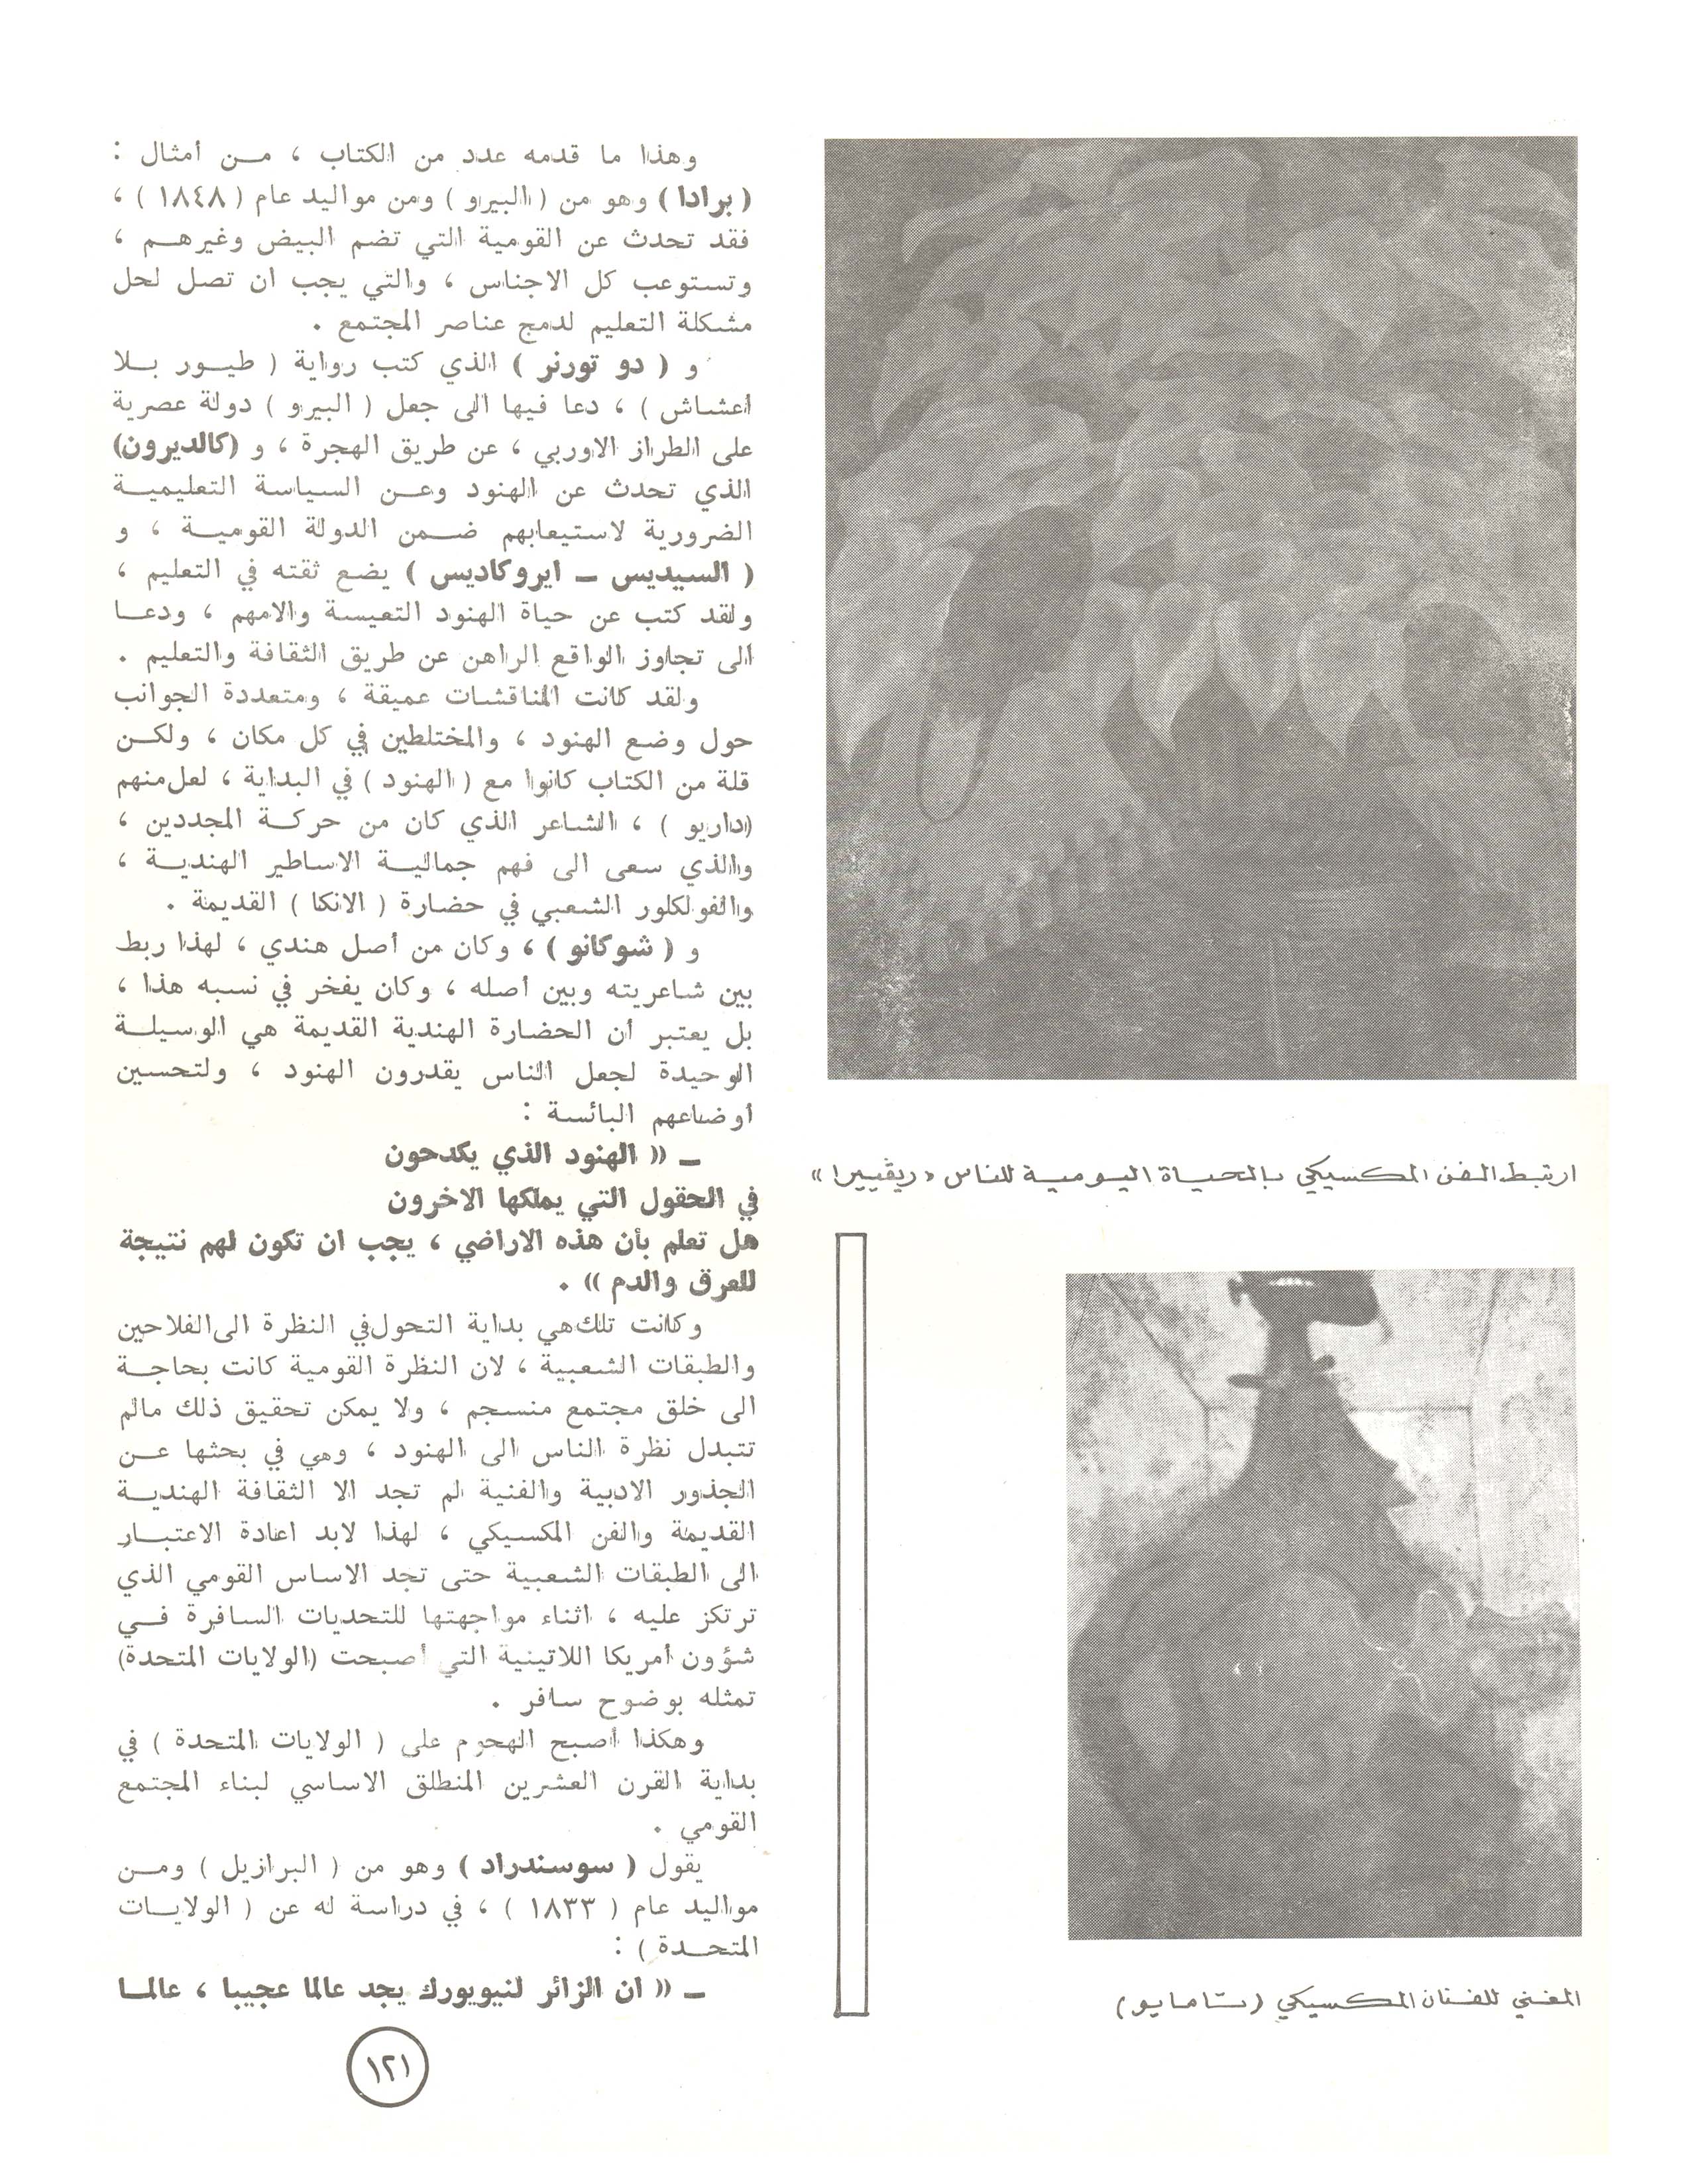 ارتبط الفن المكسيكي بالحياة اليومية للناس «ريڤييرا»
المغني للفنان المكسيكي (تامايو)
وهذا ما قدمه عدد من الكتاب ، مـن أمثال :
( برادا ) وهو من ( البيرو ) ومن مواليد عام ( ١٨٤٨ ) ،
فقد تحدث عن القومية التي تضم البيض وغيرهـم ،
وتستوعب كل الاجناس ، والتي يجب ان تصل لحل
مشكلة التعليم لدمج عناصر المجتمع .
و ( دو تورنر ) الذي كتب رواية ( طيـور بـلا
اعشاش ) ، دعا فيها الى جعل ( البيرو ) دولة عصرية
على الطراز الاوربي ، عن طريق الهجرة ، و (كالديرون)
الذي تحدث عن الهنود وعـن السياسة التعليميـة
الضرورية لاستيعابهم ضـمن الدولة القوميـة ، و
( السيديس ـ ايروكاديس ) يضع ثقته في التعليم ،
ولقد كتب عن حياة الهنود التعيسة والامهم ، ودعـا
الى تجاوز الواقع الراهن عن طريق الثقافة والتعليم .
ولقد كانت المناقشات عميقة ، ومتعددة الجوانب
حول وضع الهنود ، والمختلطين في كل مكان ، ولكـن
قلة من الكتاب كانوا مع ( الهنود ) في البداية ، لعل منهم
(داريو ) ، الشاعر الذي كان من حركـة المجددين ،
والذي سعى الى فهم جماليـة الاساطير الهنديـة ،
والفولكلور الشعبي في حضارة ( الانكا ) القديمة .
و ( شوكانو ) ، وكان من أصل هندي ، لهذا ربط
بين شاعريته وبين أصله ، وكان يفخر في نسبه هذا ،
بل يعتبر أن الحضارة الهندية القديمة هي الوسيلـة
الوحيدة لجعل الناس يقدرون الهنود ، ولتحسين
أوضاعهم البائسة :
ـ « الهنود الذي يكدحون
في الحقول التي يملكها الاخرون
هل تعلم بأن هذه الاراضي ، يجب ان تكون لهم نتيجة
للعرق والدم » .
وكانت تلك هي بداية التحول في النظرة الى الفلاحين
والطبقات الشعبية ، لان النظرة القومية كانت بحاجـة
الى خلق مجتمع منسجم ، ولا يمكن تحقيق ذلك مالم
تتبدل نظرة الناس الى الهنود ، وهي في بحثها عـن
الجذور الادبية والفنية لم تجد الا الثقافة الهنديـة
القديمة والفن المكسيكي ، لهذا لابد اعادة الاعتبـار
الى الطبقات الشعبية حتى تجد الاساس القومي الذي
ترتكز عليه ، اثناء مواجهتها للتحديات السافرة فـي
شؤون أمريكا اللاتينية التي أصبحت (الولايات المتحدة)
تمثله بوضوح سافر .
وهكذا أصبح الهجوم على ( الولايات المتحدة ) في
بداية القرن العشرين المنطلق الاساسي لبناء المجتمع
القومي .
يقول ( سوسندراد ) وهو من ( البرازيل ) ومـن
مواليد عام ( ١٨٣٣ ) ، في دراسة له عن ( الولايـات
المتحـدة ) :
ـ « ان الزائر لنيويورك يجد عالما عجيبا ، عالمـا
١٢١